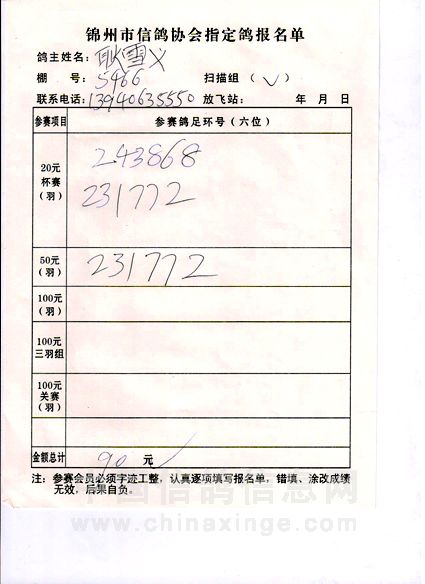 锦州市信鸽协会指定鸽报名单
鸽主姓名：耿雪义
棚 号：5466 扫描组（√）
联系电话：13940635550 放飞站： 年 月 日
参赛项目 参赛鸽足环号（六位）
20元
杯赛
（羽）
243868
231772
50元
（羽）
231772
100元
（羽）
100元
三羽组
100元
关赛
（羽）
金额总计 90 元
注：参赛会员必须字迹工整，认真逐项填写报名单，错填、涂改成绩
无效，后果自负。
中国信鸽信息网
www.chinaxinge.com